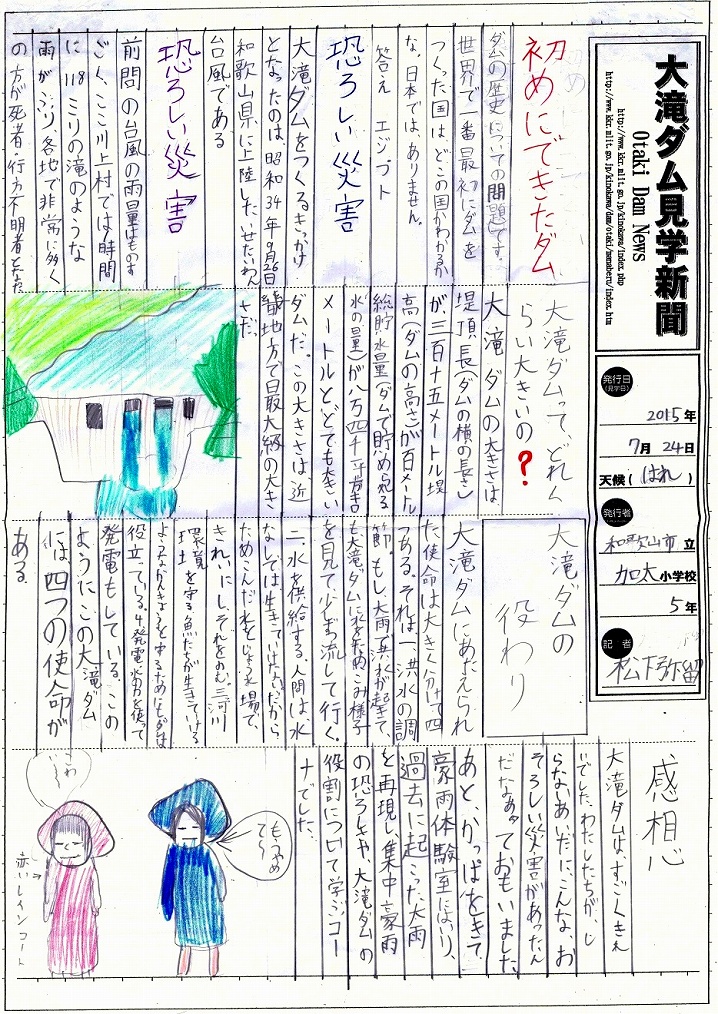 大滝ダム見学新聞
Otaki Dam News
http://www.kkr.mlit.go.jp/kinokawa/index.php
http://www.kkr.mlit.go.jp/kinokawa/dam/otaki/manaberu/index.htm
発行日
(見学日)
2015年
7月24日
天候(はれ)
発行者
和歌山市立
加太小学校
5年
記者
松下弥留
初めにできたダム
ダムの歴史についての問題です。
世界で一番最初にダムを
つくった国はどこの国かわかるか
な。日本では、ありません。
答え エジプト
恐ろしい災害
大滝ダムをつくるきっかけ
となったのは、昭和34年9月26日
和歌山県に上陸したいせたいわん
台風である
恐ろしい災害
前問の台風の雨量はものす
ごく、ここ川上村では1時間
に118ミリの滝のような
雨がふり、各地で非常に多く
の方が死者・行方不明者となった
大滝ダムって、どれく
らい大きいの?
大滝ダムの大きさは、
堤頂長(ダムの横の長さ)
が、三百十五メートル堤
高(ダムの高さ)が百メートル
総貯水量(ダムで貯められる
水の量)が八万四千平方キロ
メートルととても大きい
ダムだ。この大きさは、近
畿地方で日最大級の大き
さだ。
大滝ダムの
役わり
大滝ダムにあたえられ
た使命は大きく分けて四
つある。それは一、洪水の調
節。もし、大雨で洪水が起きて、
も大滝ダムに水をためこみ様子
を見て少しずつ流して行く。
二、水を供給する。人間は、水
なしでは生きていけない。だから
ためこんだ水をじょう水場で
きれいにし、それをのむ。三河川
環境を守る。魚たちが生きていける
ようなかんきょうを守るためにもダムは
役立っている。4発電。水力を使って
発電もしている。この
ようにこの大滝ダム
には四つの使命が
ある。
感相心
大滝ダムは、すごくきれ
いでした。わたしたちが、し
らないあいだに、こんな、お
そろしい災害があったん
だなあっておもいました。
あと、かっぱをきて、
豪雨体験室にはいり、
過去に起こった大雨
を再現し、集中豪雨
の恐ろしさや、大滝ダムの
役割について学ぶコー
ナでした。
もうやめ
て〜
こわ
い〜
赤いレインコート